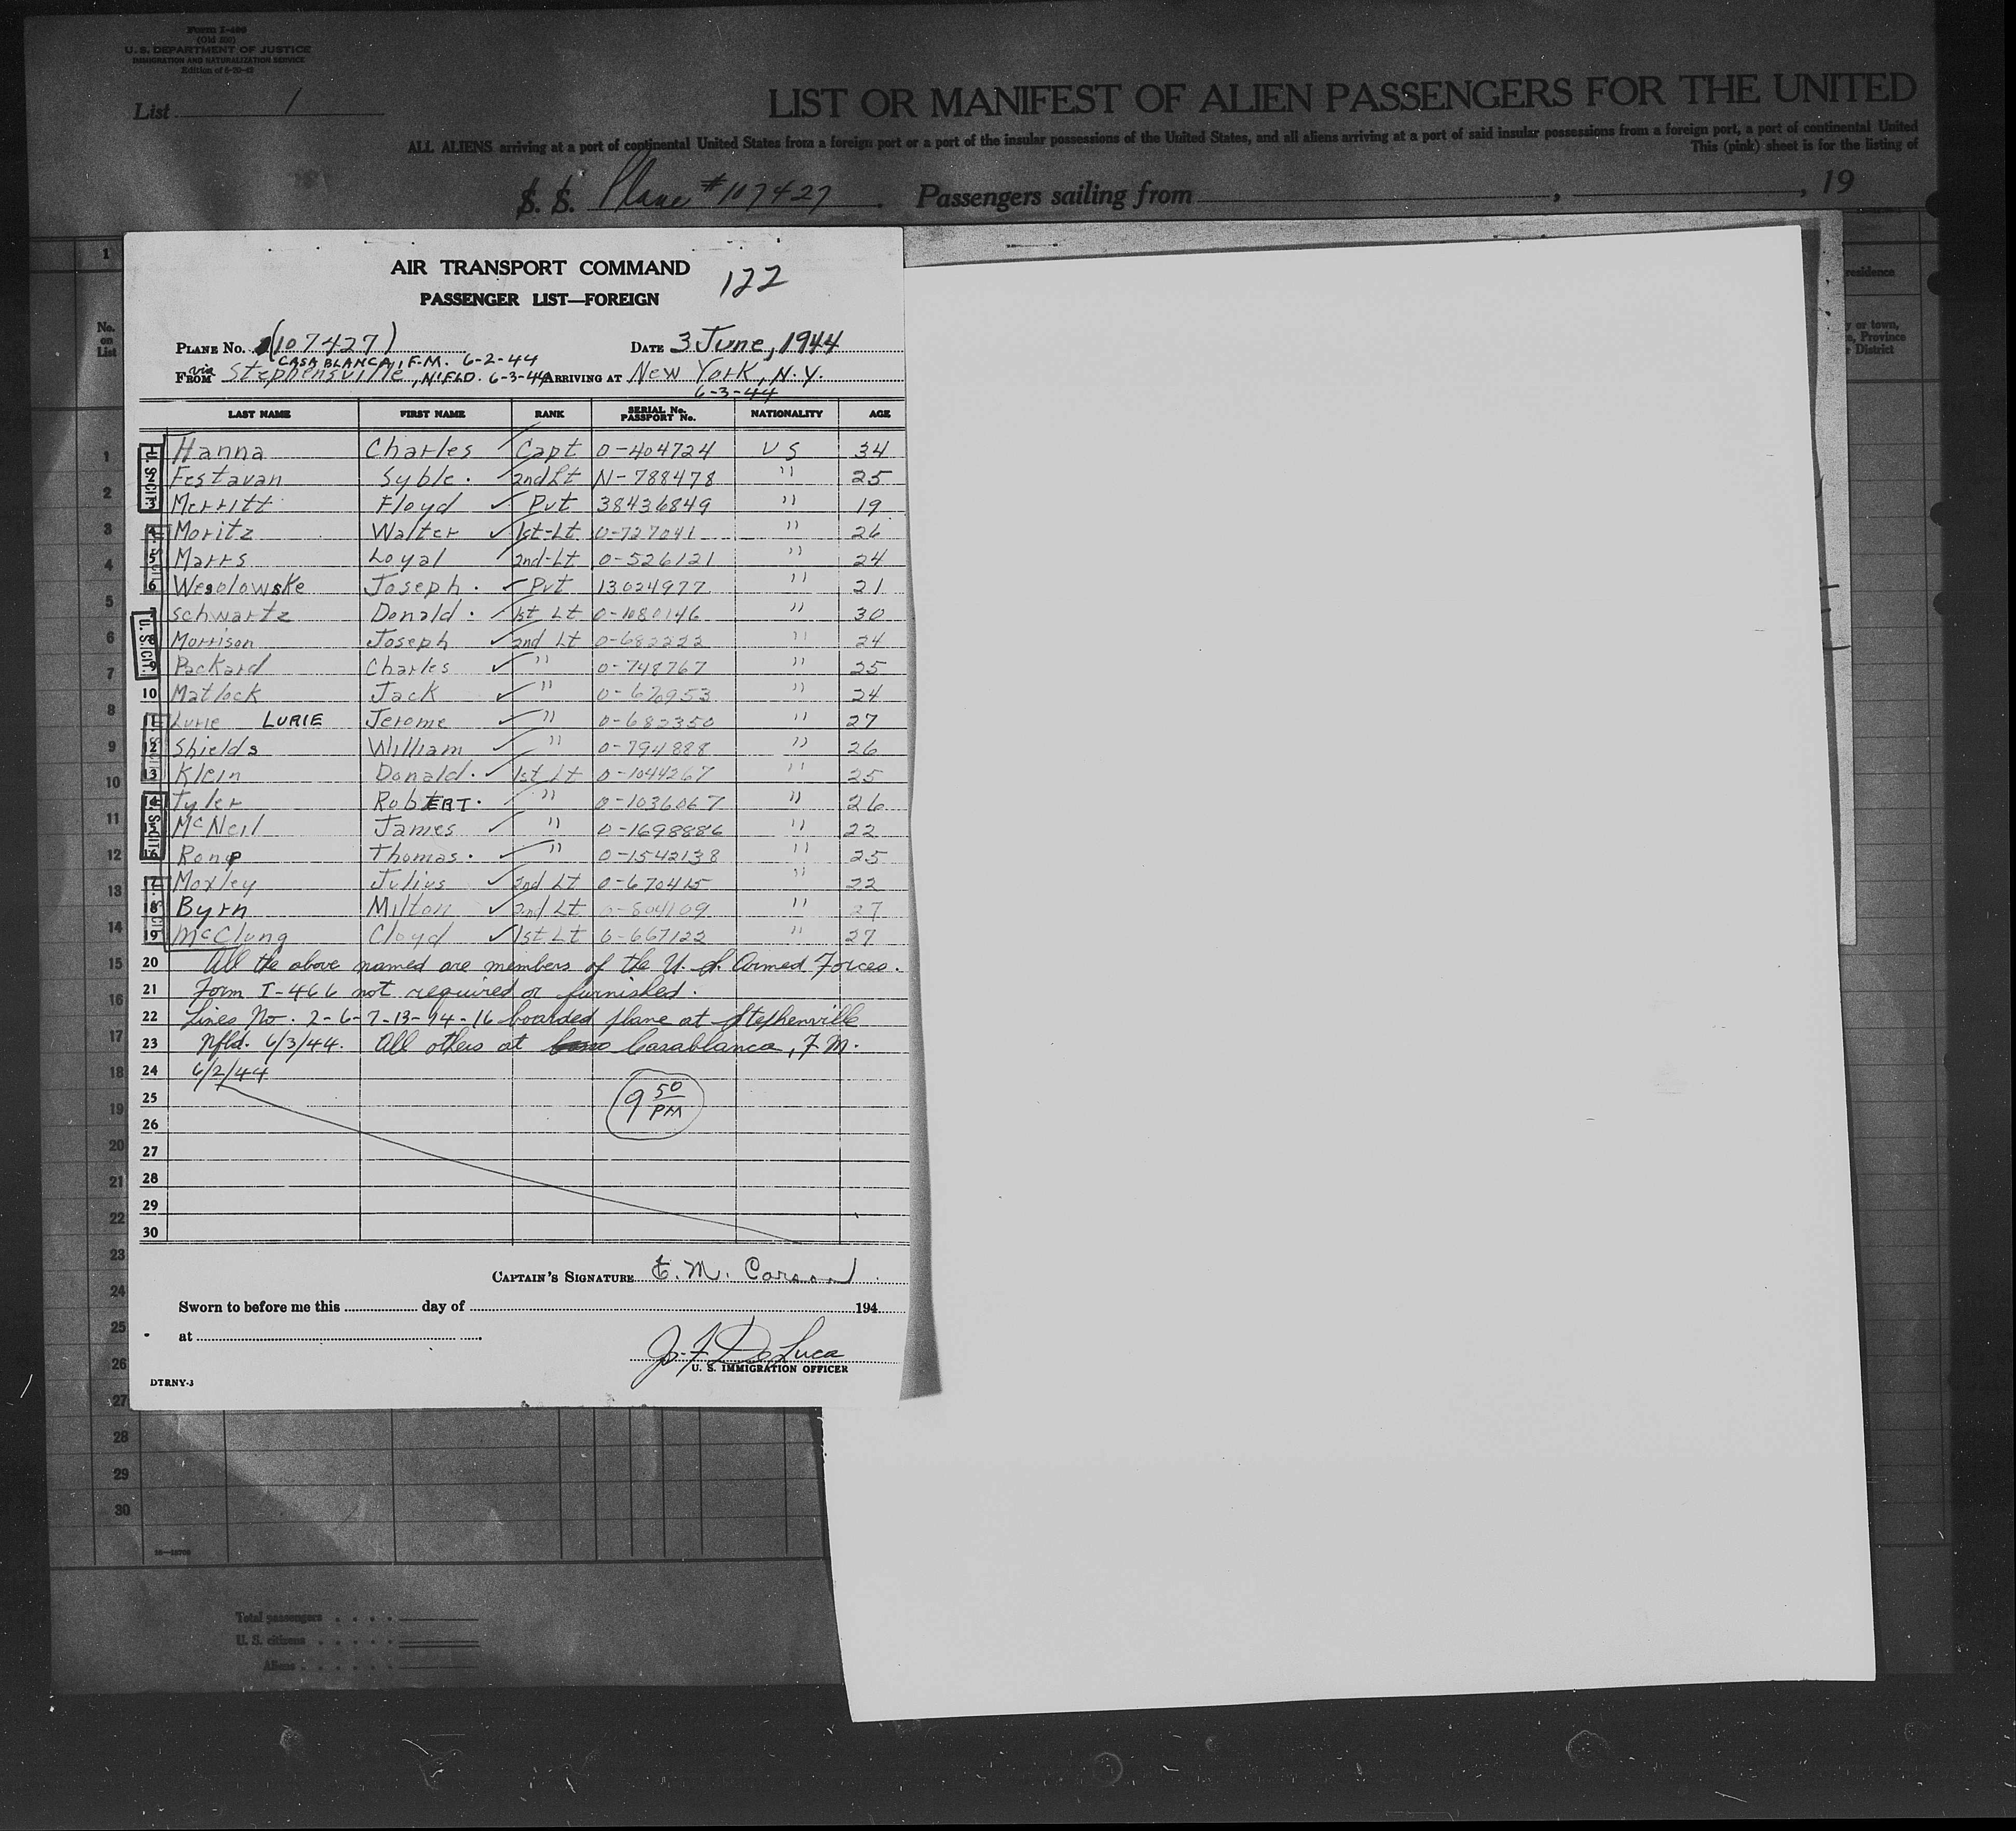 Form I-480
(Old 500)
U. S. DEPARTMENT OF JUSTICE
IMMIGRATION AND NATURALIZATION SERVICE
List 1
LIST OR MANIFEST OF ALIEN PASSENGERS FOR THE UNITED
ALL ALIENS arriving at a port of continental United States from a foreign port or a port of the insular possessions of the United States, and all aliens arriving at a port of said insular possessions from a foreign port, a port of continental United
This (pink) sheet is for the listing of
S. S. Plane #107427 Passengers sailing from , , 19
AIR TRANSPORT COMMAND 122
PASSENGER LIST—FOREIGN
PLANE No. (107427) DATE 3 June, 1944
CASA BLANCA, F.M. 6-2-44
FROM via Stephensville, N'FLD. 6-3-44 ARRIVING AT New York, N.Y.
6-3-44
LAST NAME FIRST NAME RANK SERIAL No. PASSPORT No. NATIONALITY AGE
Hanna Charles Capt 0-404724 US 34
Festavan Syble. 2nd Lt N-788478 " 25
3 Merritt Floyd ✓ Pvt 38436849 " 19
4 Moritz Walter ✓ 1st-Lt 0-727041 " 26
5 Marrs Loyal 2nd-Lt 0-526121 " 24
6 Wesolowske Joseph. ✓ Pvt 13024977 " 21
7 Schwartz Donald. 1st Lt 0-1080146 " 30
8 Morrison Joseph ✓ 2nd Lt 0-682222 " 24
9 Packard Charles ✓ " 0-748767 " 25
10 Matlock Jack ✓ " 0-676953 " 24
11 Lurie LURIE Jerome ✓ " 0-682350 " 27
12 Shields William ✓ " 0-794888 " 26
13 Klein Donald. ✓ 1st Lt 0-1044267 " 25
14 Tyler RobERT. " 0-1036067 " 26
15 McNeil James ✓ " 0-1698886 " 22
16 Rong Thomas. ✓ " 0-1542138 " 25
17 Moxley Julius ✓ 2nd Lt 0-670415 " 22
18 Byrn Milton ✓ 2nd Lt 0-804109 " 27
19 McClung Cloyd ✓ 1st Lt 0-667122 " 27
20 All the above named are members of the U.S. Armed Forces.
21 Form I-466 not required or furnished.
22 Lines No. 2-6-7-13-14-16 boarded plane at Stephenville
23 Nfld. 6/3/44. All others at Casablanca, F.M.
24 6/2/44
25 9 50 PM
26
27
28
29
30
CAPTAIN'S SIGNATURE E. M. Carson
Sworn to before me this day of 194
at
J. F. De Luca
U. S. IMMIGRATION OFFICER
DTRNY-3
Total passengers
U. S. citizens
Aliens